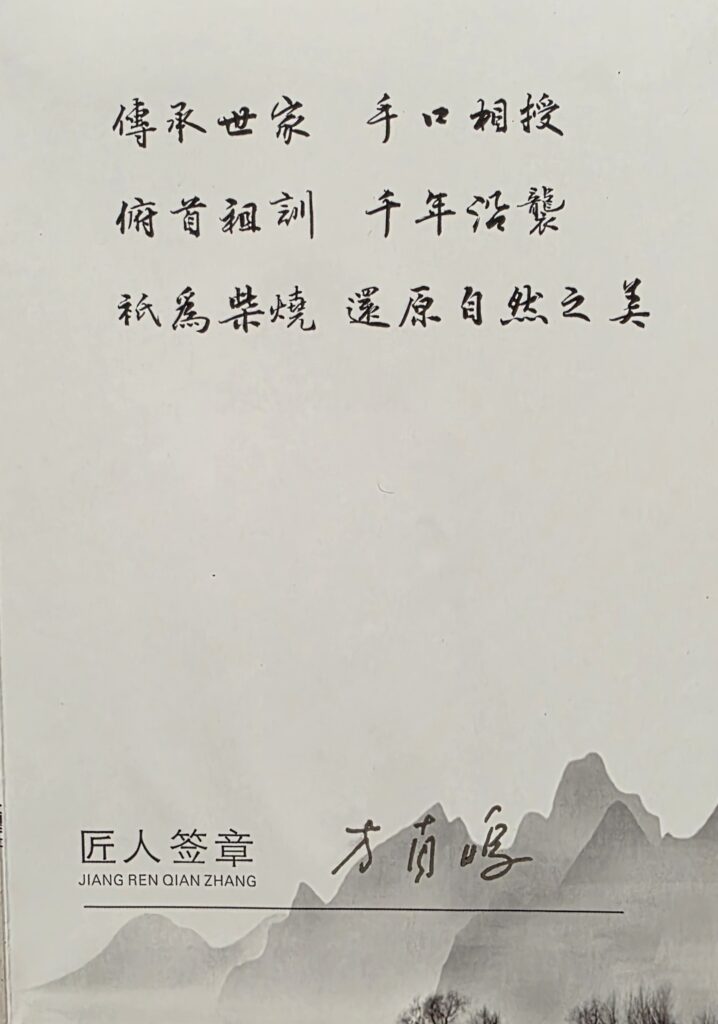 傳承世家 手口相授
俯首祖訓 千年沿襲
祇為柴燒 還原自然之美
匠人签章
JIANG REN QIAN ZHANG
方